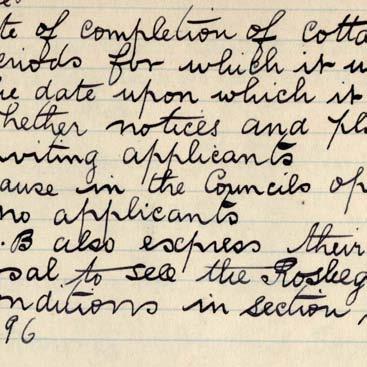 te of completion of cotta
eriods for which it w
he date upon which it
hether notices and pla
nviting applicants
ause in the Councils op
no applicants
.B also express their
sal to see the Rosbeg
onditions in section
96